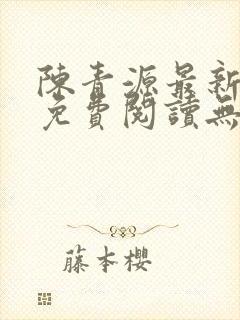 陳青源最新
免費閱讀無
藤本櫻